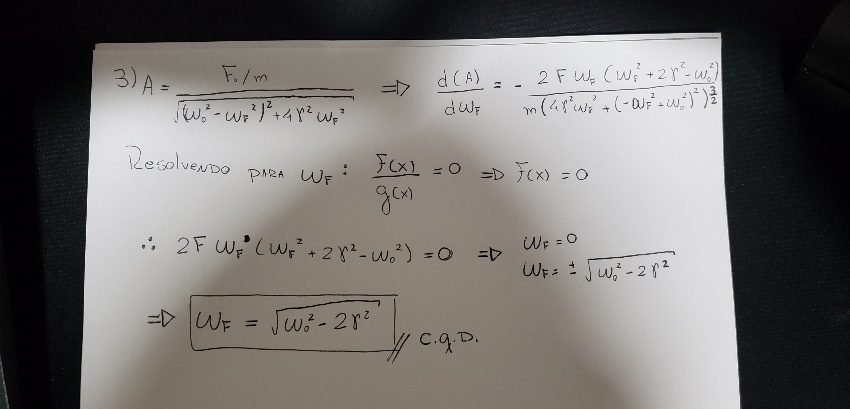 3) A = (F₀/m) / √((ω₀² - ω_F²)² + 4γ² ω_F²) ⇒ d(A)/dω_F = - 2 F ω_F (ω_F² + 2γ² - ω₀²) / m(4γ²ω_F² + (-ω_F² + ω₀²)²)^(3/2)
Resolvendo PARA ω_F : F(x)/g(x) = 0 ⇒ F(x) = 0
∴ 2F ω_F (ω_F² + 2γ² - ω₀²) = 0 ⇒ ω_F = 0
ω_F = ± √(ω₀² - 2γ²)
⇒ ω_F = √(ω₀² - 2γ²) // C.q.D.